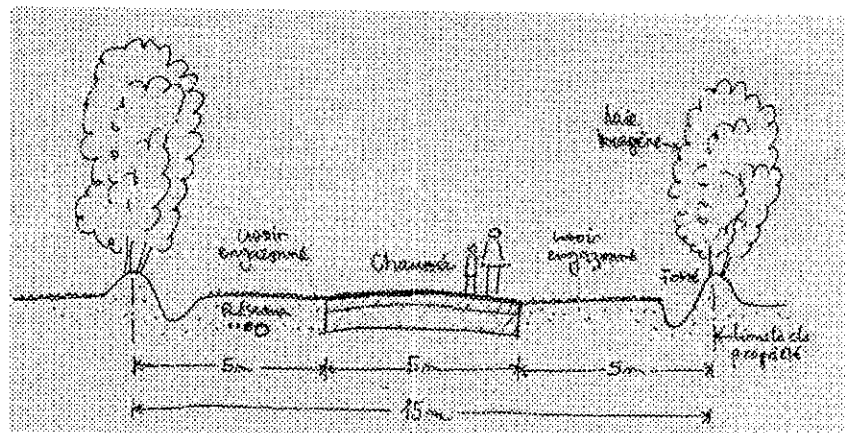 haie
bocagère
usoir
engazonné
Chaussée
usoir
engazonné
Fossé
Réseaux
limite de
propriété
5m
5m
5m
15m